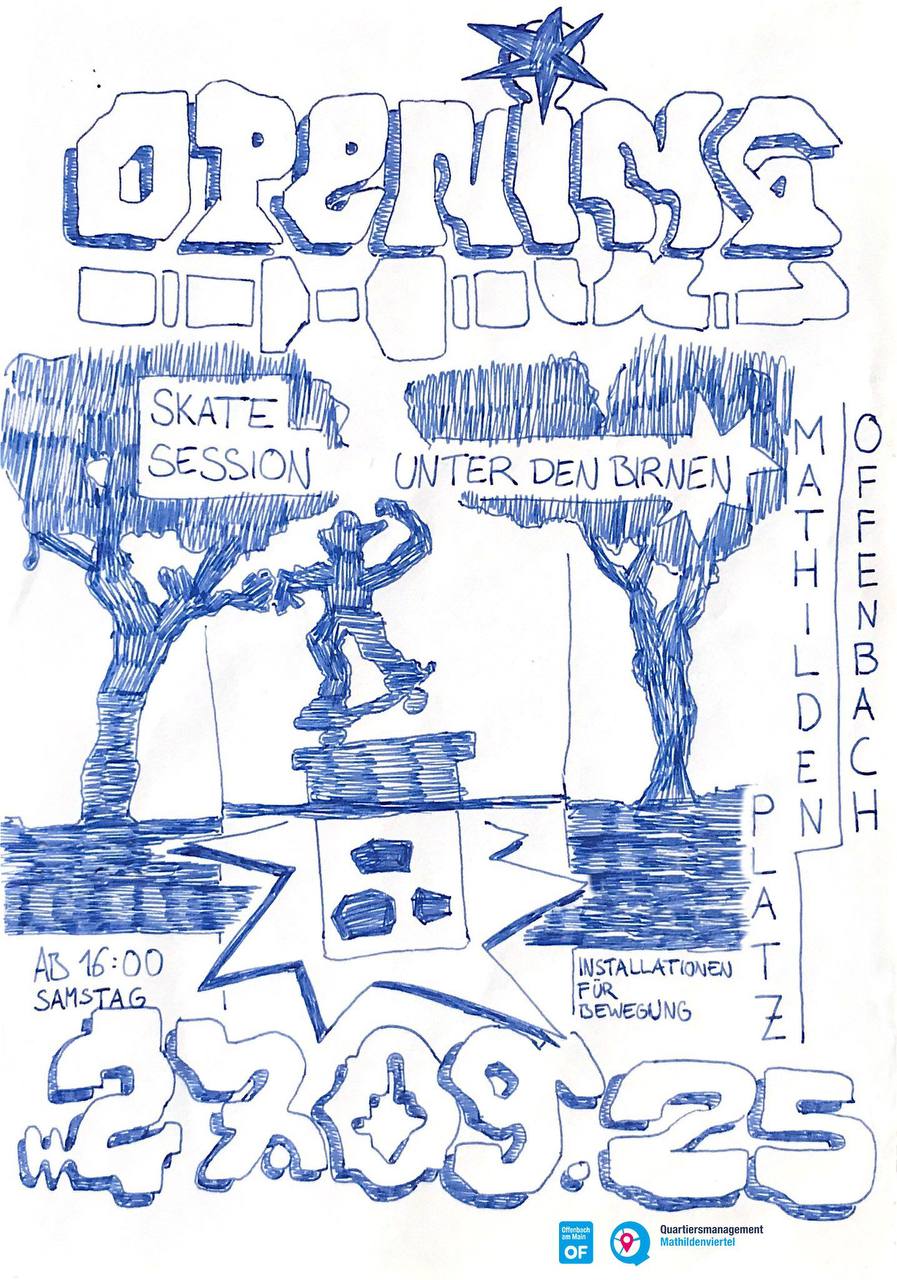 OPENING
SKATE
SESSION
UNTER DEN BIRNEN
MATHILDEN
PLATZ
OFFENBACH
AB 16:00
SAMSTAG
INSTALLATIONEN
FÜR
BEWEGUNG
27.09.25
Offenbach
am Main
OF
Quartiersmanagement
Mathildenviertel